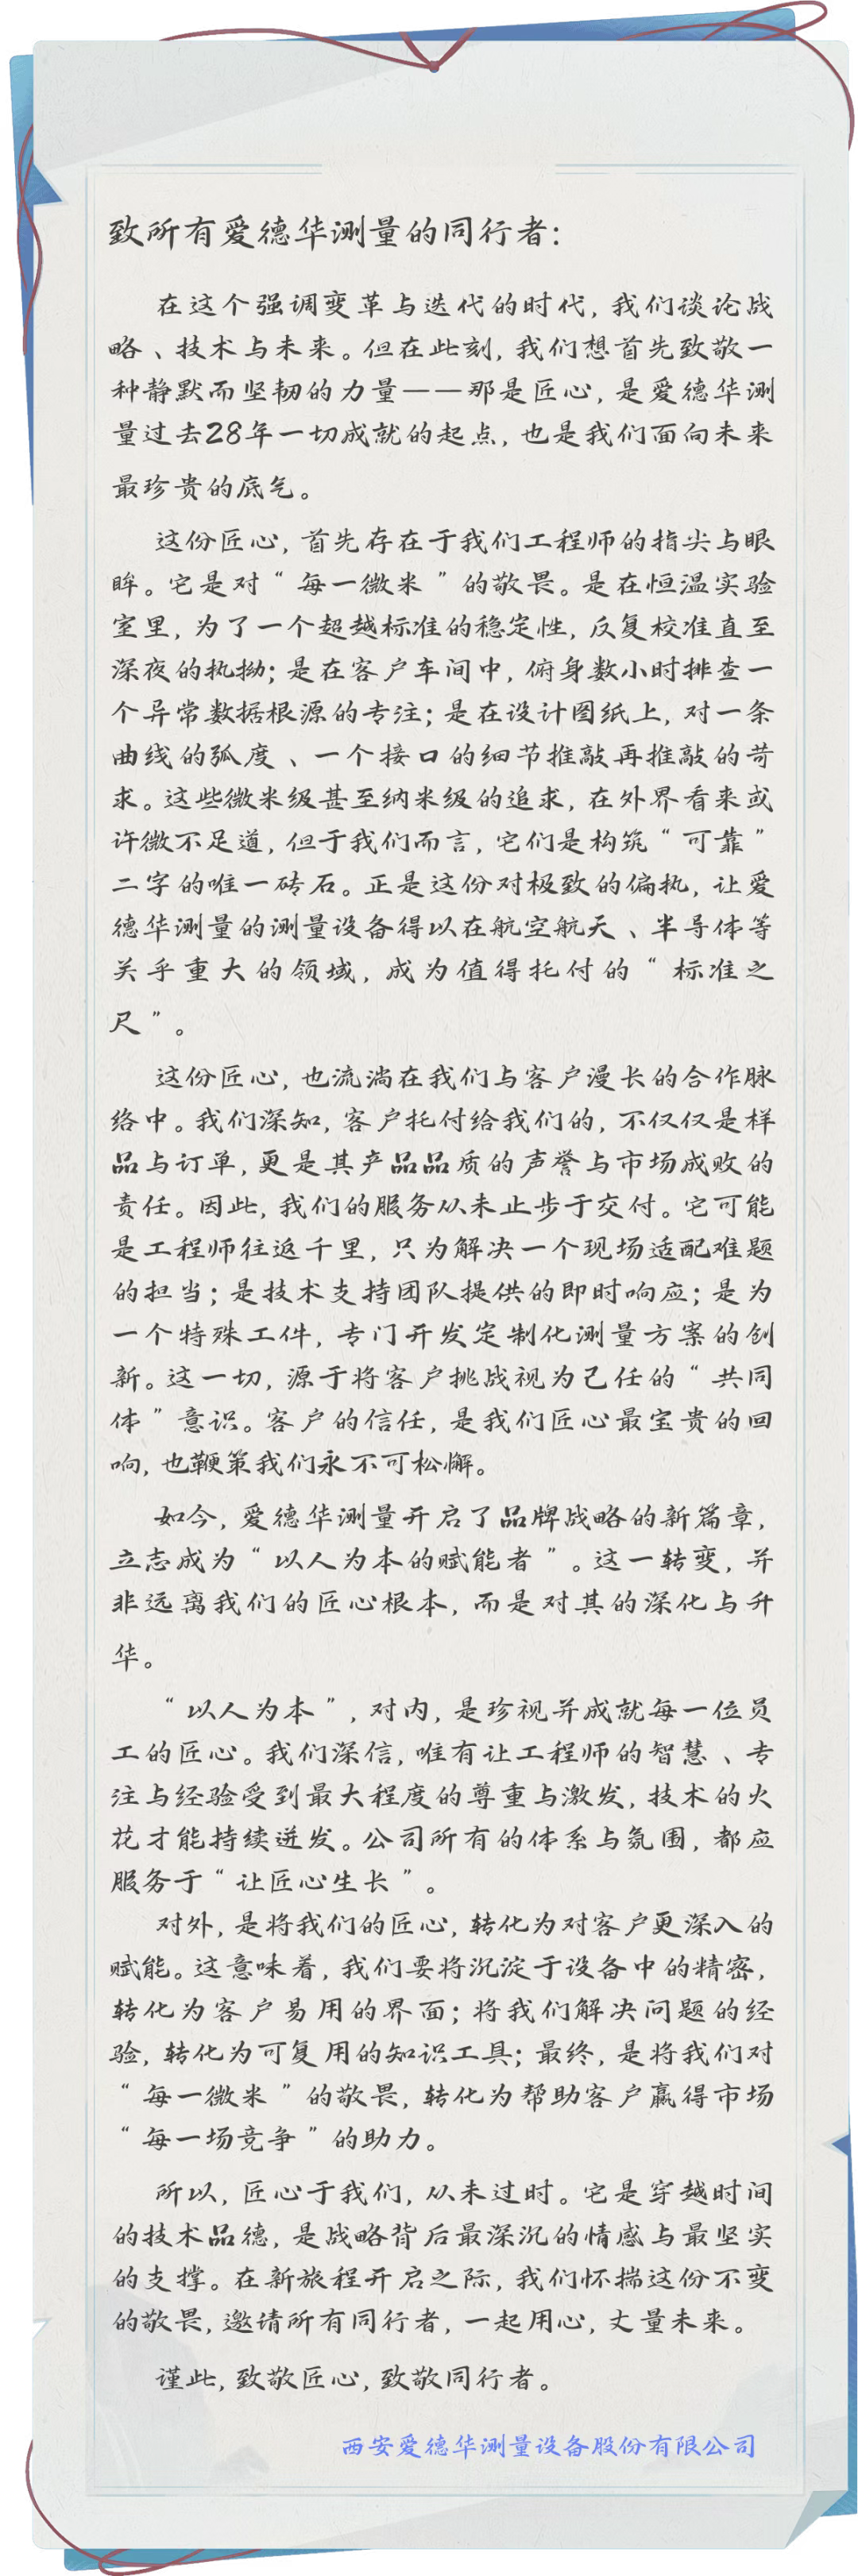 致所有爱德华测量的同行者：
在这个强调变革与迭代的时代，我们谈论战
略、技术与未来。但在此刻，我们想首先致敬一
种静默而坚韧的力量——那是匠心，是爱德华测
量过去28年一切成就的起点，也是我们面向未来
最珍贵的底气。
这份匠心，首先存在于我们工程师的指尖与眼
眸。它是对“每一微米”的敬畏。是在恒温实验
室里，为了一个超越标准的稳定性，反复校准直至
深夜的执拗；是在客户车间中，俯身数小时排查一
个异常数据根源的专注；是在设计图纸上，对一条
曲线的弧度、一个接口的细节推敲再推敲的苛
求。这些微米级甚至纳米级的追求，在外界看来或
许微不足道，但于我们而言，它们是构筑“可靠”
二字的唯一砖石。正是这份对极致的偏执，让爱
德华测量的测量设备得以在航空航天、半导体等
关乎重大的领域，成为值得托付的“标准之
尺”。
这份匠心，也流淌在我们与客户漫长的合作脉
络中。我们深知，客户托付给我们的，不仅仅是样
品与订单，更是其产品品质的声誉与市场成败的
责任。因此，我们的服务从未止步于交付。它可能
是工程师往返千里，只为解决一个现场适配难题
的担当；是技术支持团队提供的即时响应；是为
一个特殊工件，专门开发定制化测量方案的创
新。这一切，源于将客户挑战视为己任的“共同
体”意识。客户的信任，是我们匠心最宝贵的回
响，也鞭策我们永不可松懈。
如今，爱德华测量开启了品牌战略的新篇章，
立志成为“以人为本的赋能者”。这一转变，并
非远离我们的匠心根本，而是对其的深化与升
华。
“以人为本”，对内，是珍视并成就每一位员
工的匠心。我们深信，唯有让工程师的智慧、专
注与经验受到最大程度的尊重与激发，技术的火
花才能持续迸发。公司所有的体系与氛围，都应
服务于“让匠心生长”。
对外，是将我们的匠心，转化为对客户更深入的
赋能。这意味着，我们要将沉淀于设备中的精密，
转化为客户易用的界面；将我们解决问题的经
验，转化为可复用的知识工具；最终，是将我们对
“每一微米”的敬畏，转化为帮助客户赢得市场
“每一场竞争”的助力。
所以，匠心于我们，从未过时。它是穿越时间
的技术品德，是战略背后最深沉的情感与最坚实
的支撑。在新旅程开启之际，我们怀揣这份不变
的敬畏，邀请所有同行者，一起用心，丈量未来。
谨此，致敬匠心，致敬同行者。
西安爱德华测量设备股份有限公司